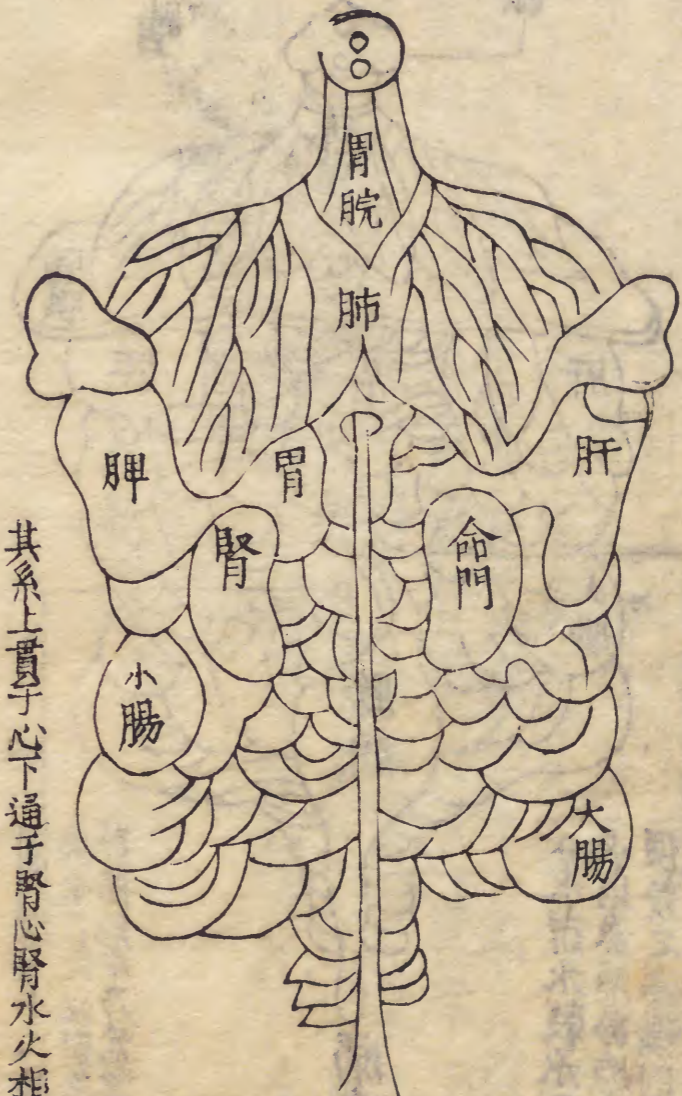 胃脘
肺
脾
胃
肝
腎
命門
小腸
大腸
其系上貫于心下通于腎心腎水火相